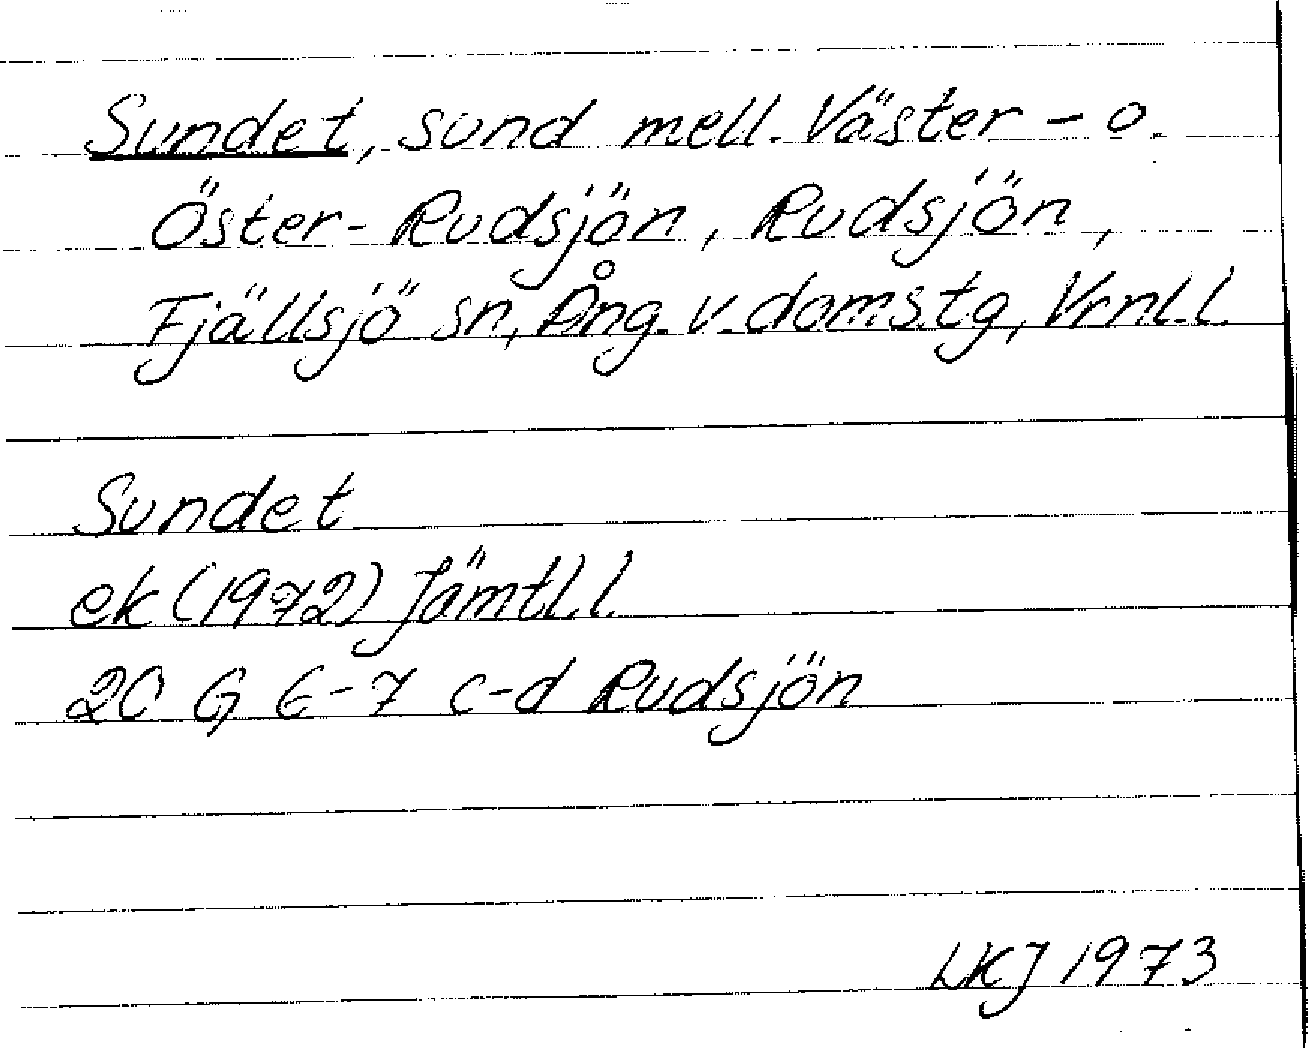 Sundet, sund mell. Väster- o.
Öster-Rudsjön, Rudsjön,
Fjällsjö sn, Ång. v. domstg, Vrnl. l.
Sundet
ek (1972) Jämtl. l.
20 G 6-7 c-d Rudsjön
LKJ 1973